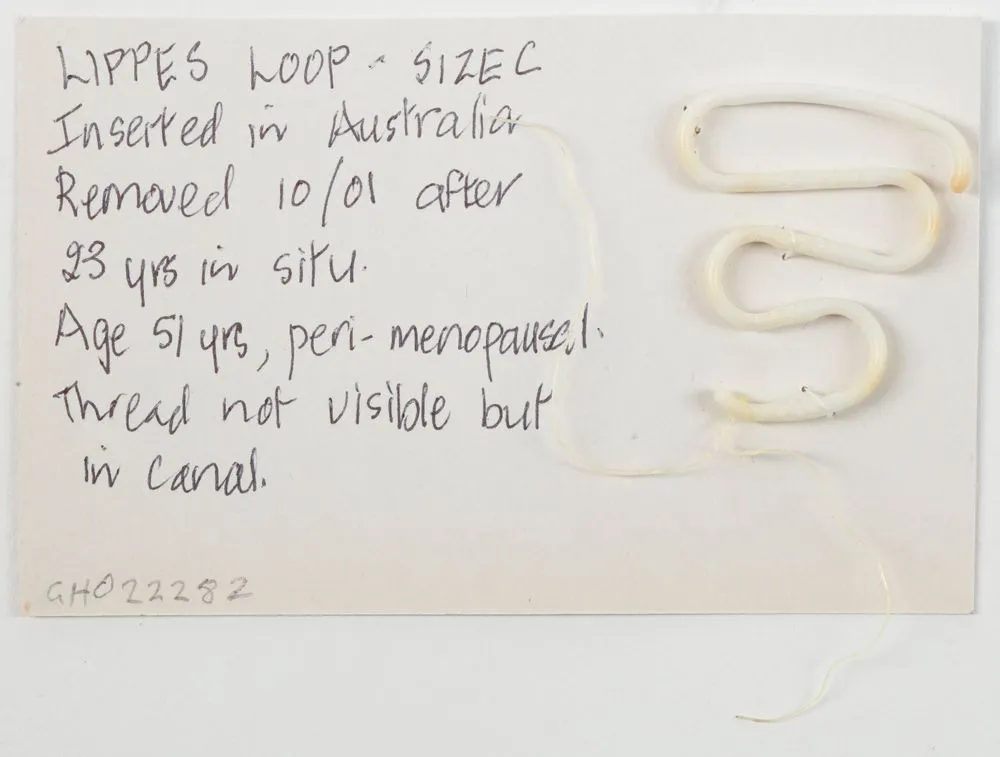 LIPPES LOOP - SIZE C
Inserted in Australia
Removed 10/01 after
23 yrs in situ.
Age 51 yrs, peri-menopausal.
Thread not visible but
in canal.
GH022282